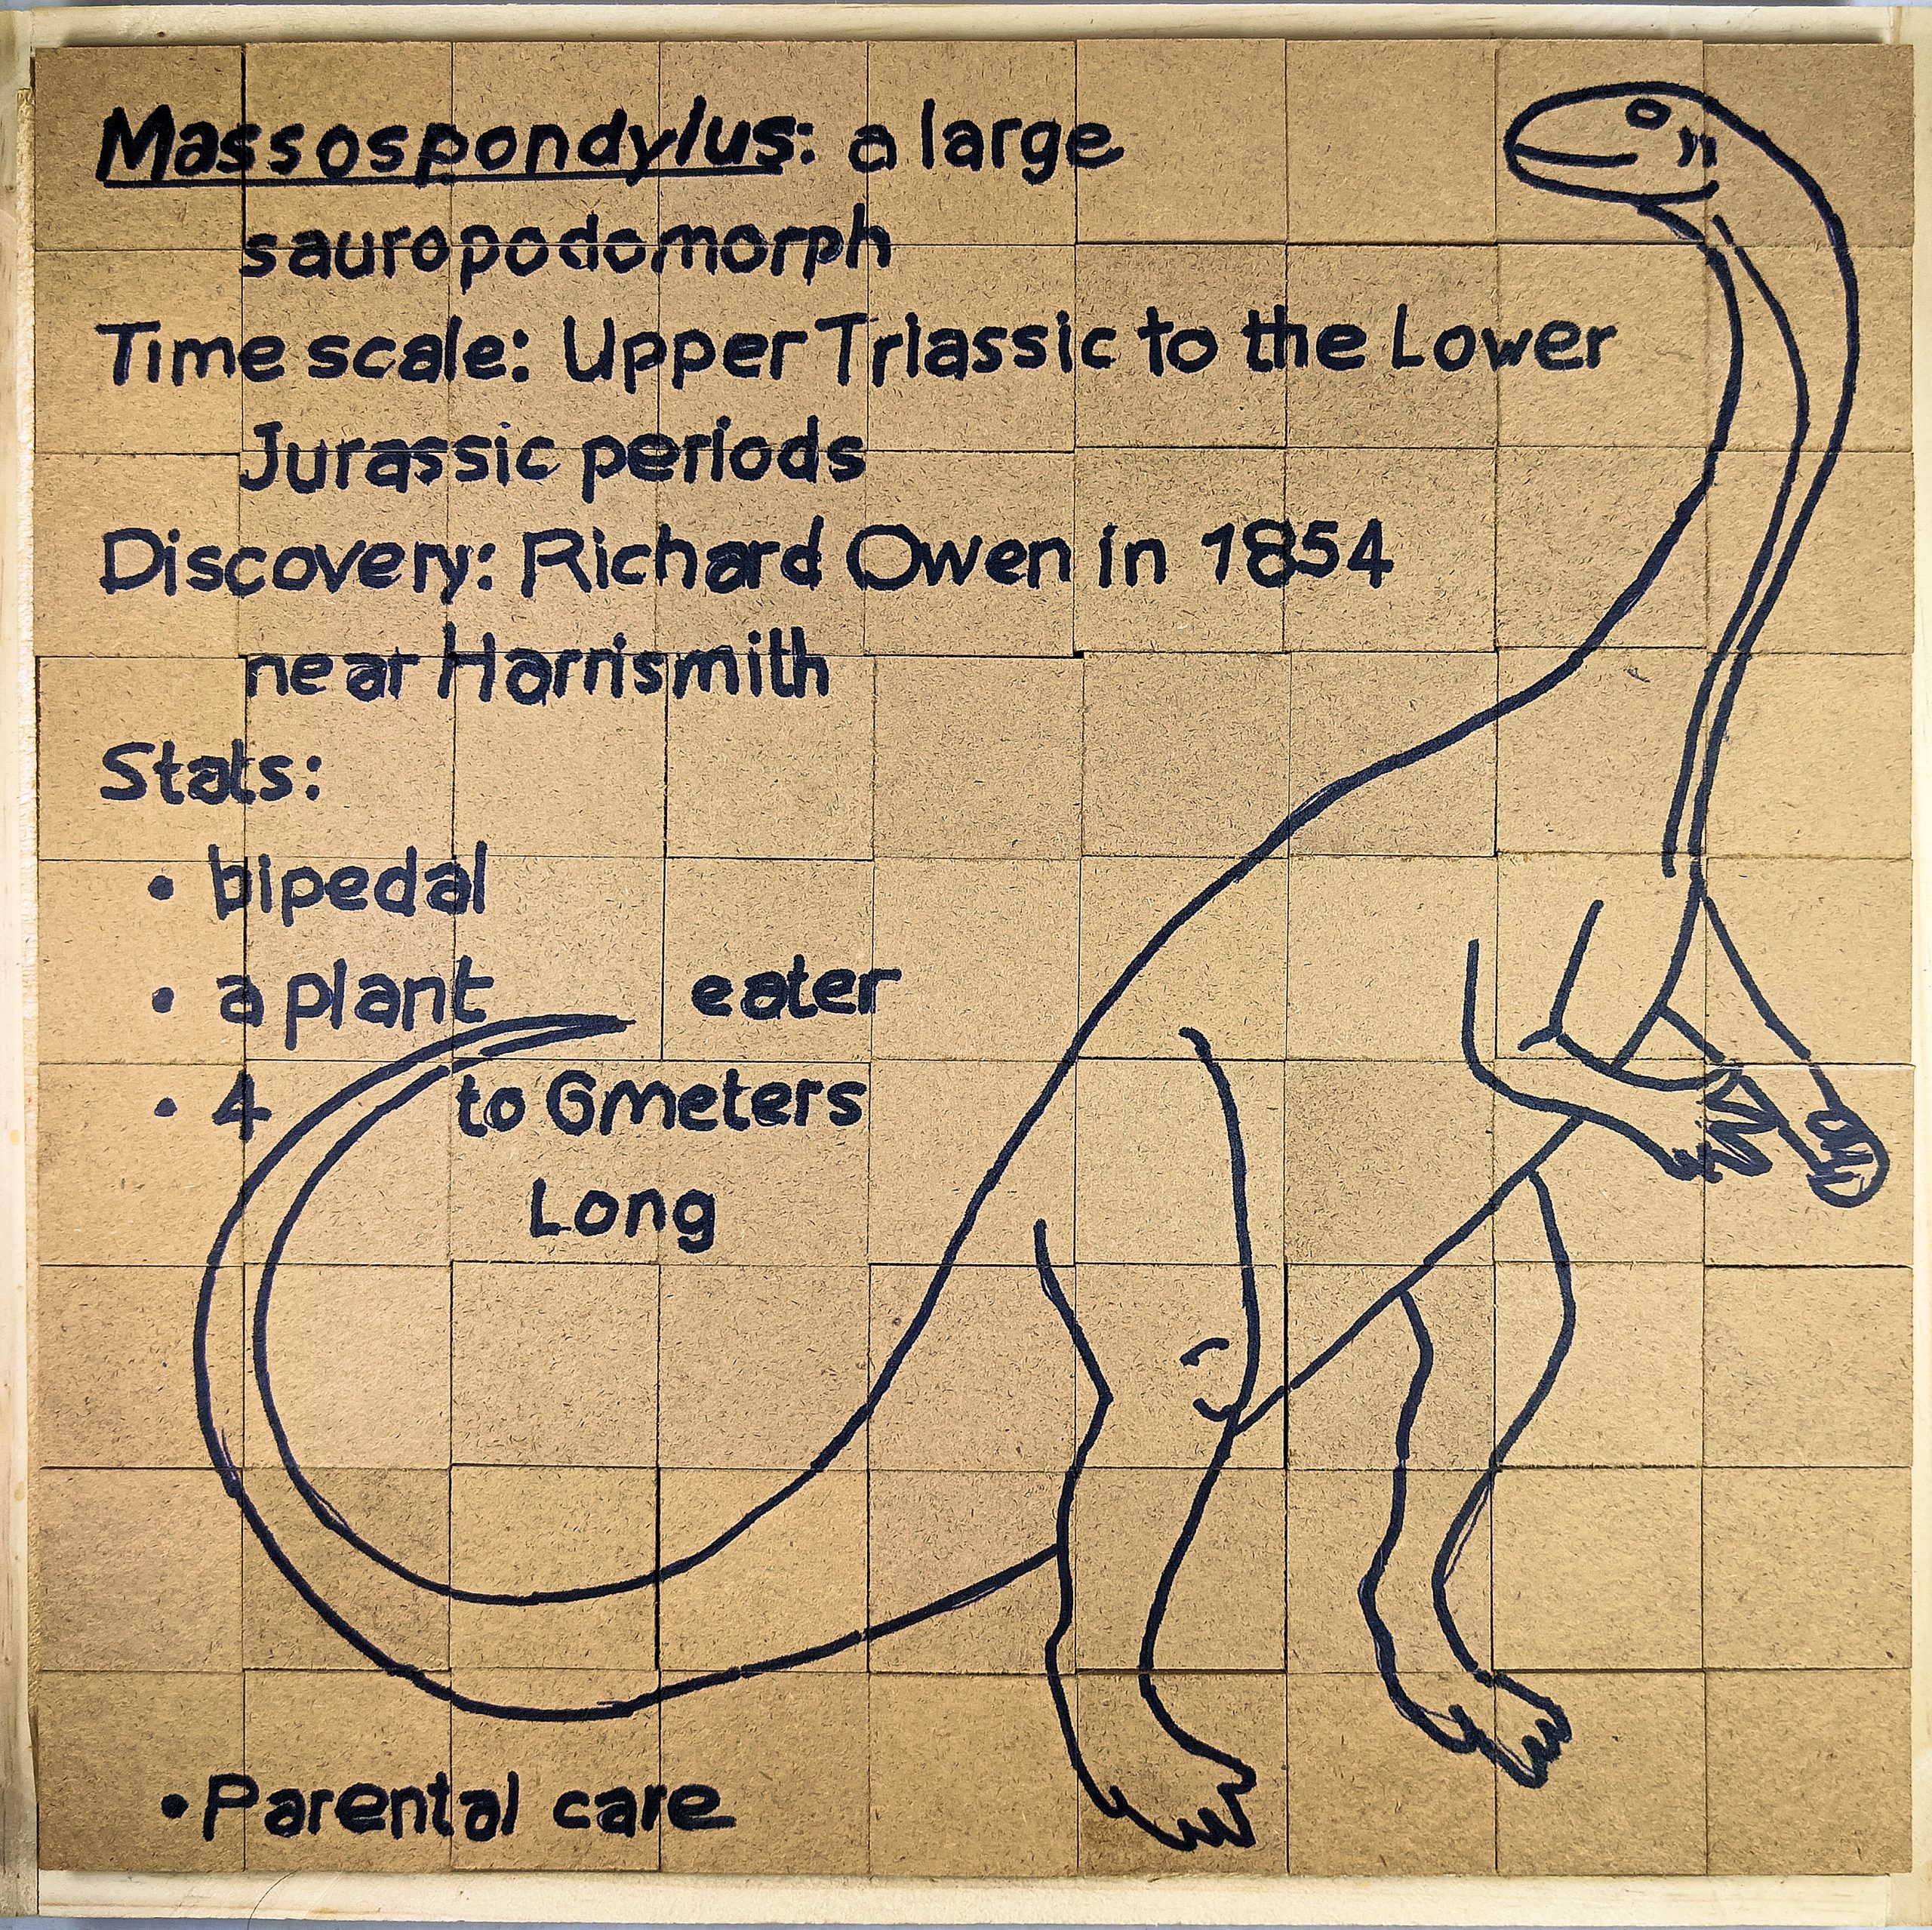 Massospondylus: a large
sauropodomorph
Time scale: Upper Triassic to the Lower
Jurassic periods
Discovery: Richard Owen in 1854
near Harrismith
Stats:
• bipedal
• a plant eater
• 4 to 6 meters
Long
• Parental care